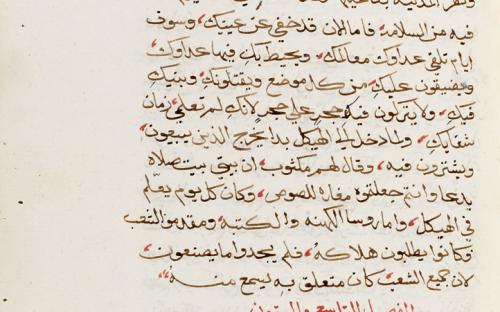 فيه من السلامة، فاما الان قد خفي عن عينيك، وسوف
ايام تلقى عداوك معالمك، ويحيط بك فيها عداوك
ويضيقون عليك، من كل موضع ويقتلونك، وبنيك
فيك، ولا يتركون فيك حجر علي حجر، لانك لم تعلمي زمان
شقايك، ولما دخل الي الهيكل بدا يخرج الذين يبيعون
ويشترون فيه، وقال لهم مكتوب، ان بيتي بيت صلاه
يدعا وانتم جعلتوه مغارة للصوص، وكان كل يوم يعلّم
في الهيكل، واما روسا الكهنه والكتبه، ومقدمو الشعب
وكانوا يطلبون هلاكه، فلم يجدوا ما يصنعون
لان جميع الشعب كان متعلق به يسمع منه
الفصل التاسع والستون